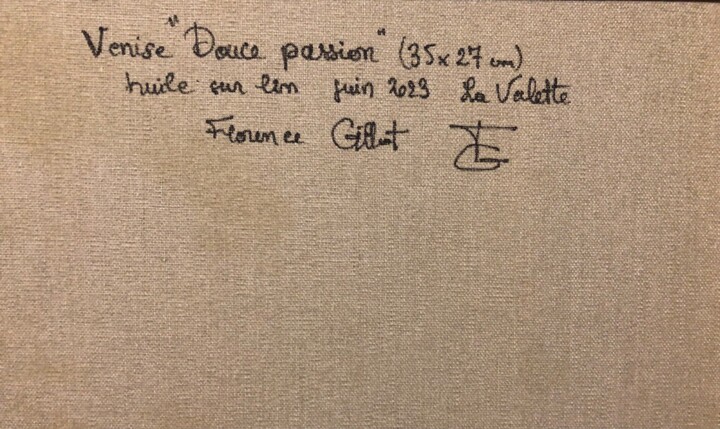 Venise "Douce passion" (35x27 cm)
huile sur lin juin 2023 La Valette
Florence